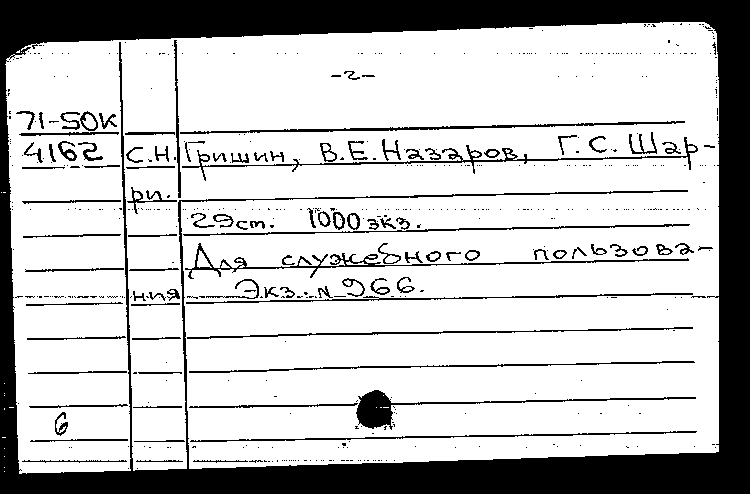 -2-
71-50к
4162 С.Н. Гришин, В.Е. Назаров, Г.С. Шар-
ри.
29 ст. 1000 экз.
Для служебного пользова-
ния Экз. N 966.
6